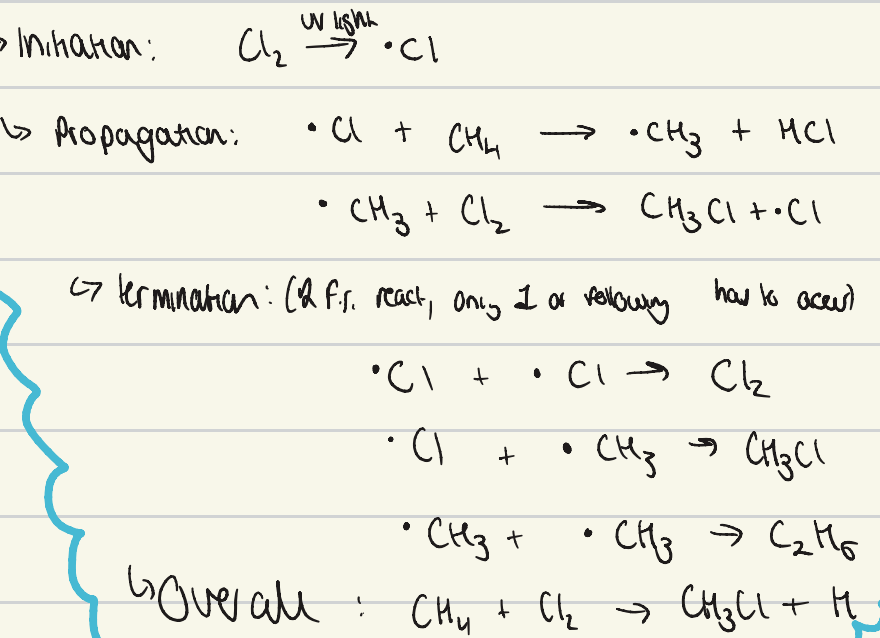 ↳ Initiation: Cl₂ —UV light→ •Cl
↳ Propagation: •Cl + CH₄ → •CH₃ + HCl
•CH₃ + Cl₂ → CH₃Cl + •Cl
↳ termination: (2 f.r. react, only 1 of following has to occur)
•Cl + •Cl → Cl₂
•Cl + •CH₃ → CH₃Cl
•CH₃ + •CH₃ → C₂H₆
↳ Overall : CH₄ + Cl₂ → CH₃Cl + H